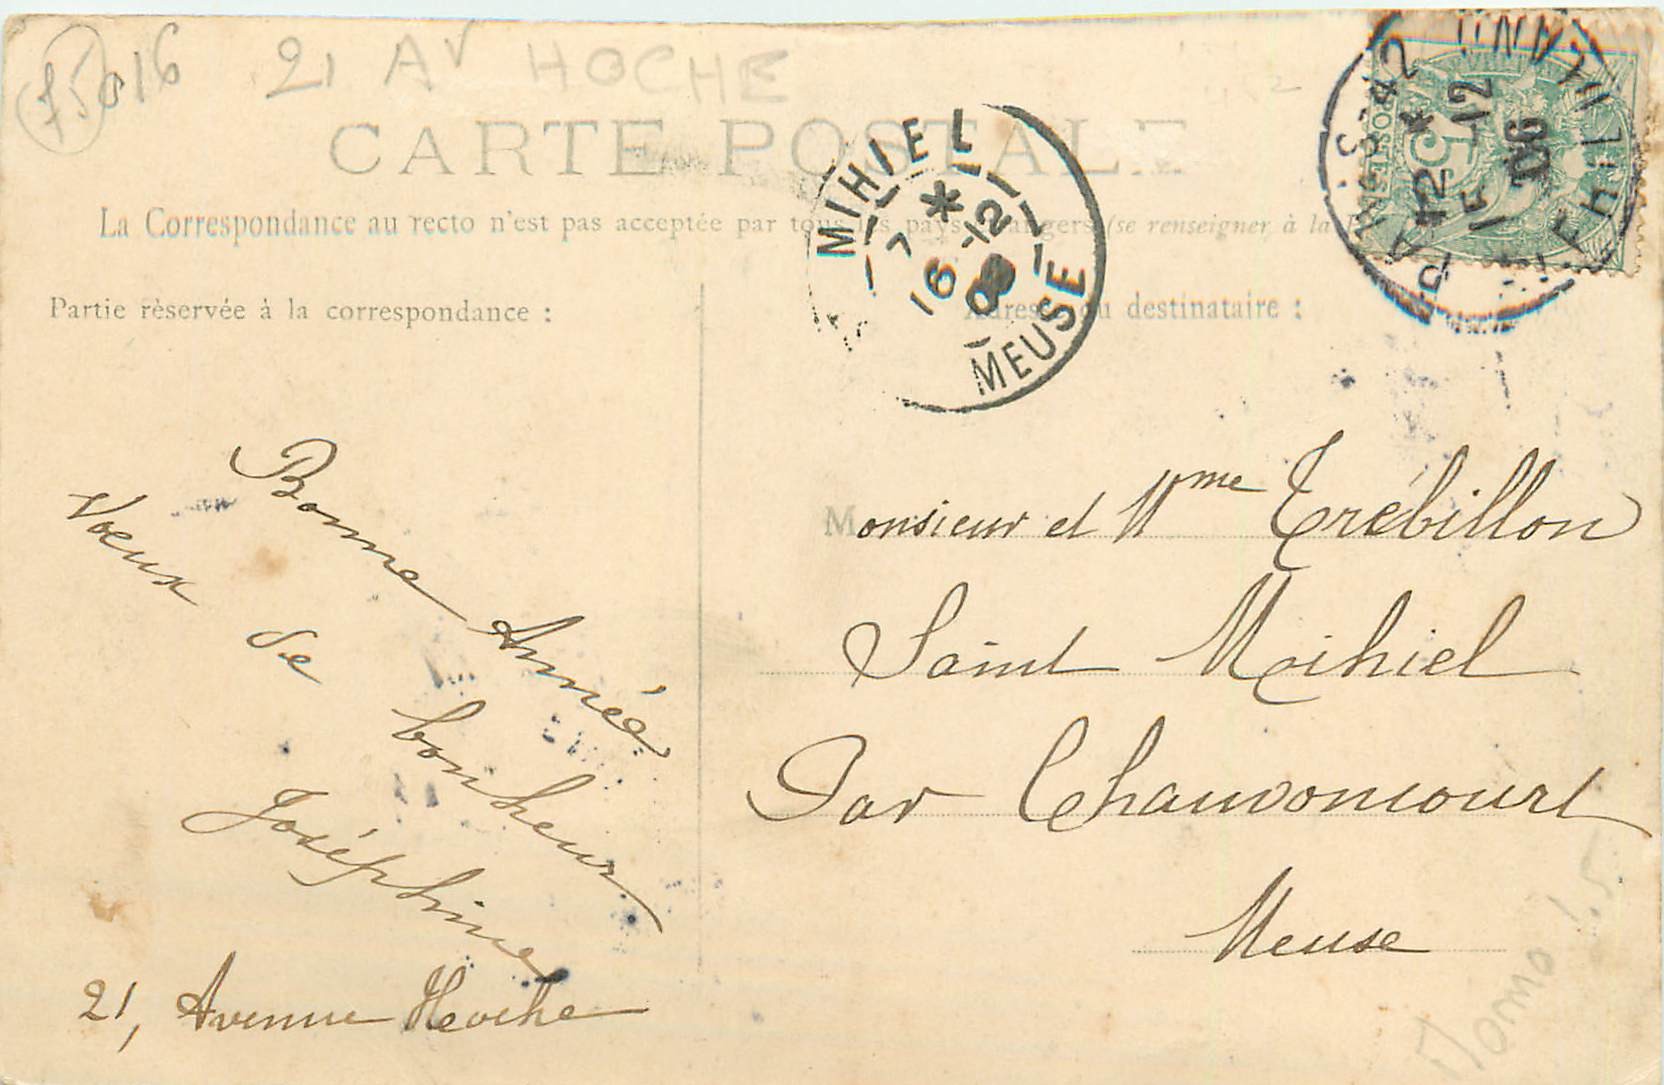 75016 21 Av HOCHE
CARTE POSTALE
La Correspondance au recto n'est pas acceptée par tous les pays étrangers (se renseigner à la
Partie réservée à la correspondance :
Adresse du destinataire :
MIHIEL
7 * 16 -12 
MEUSE
PARIS-42
12 *
15 -12
06
POSTES
5
Bonne Année
Voeux de bonheur
Joséphine
21, Avenue Hoche
Monsieur et Mme Trébillon
Saint Mihiel
Par Chauvoncourt
Meuse